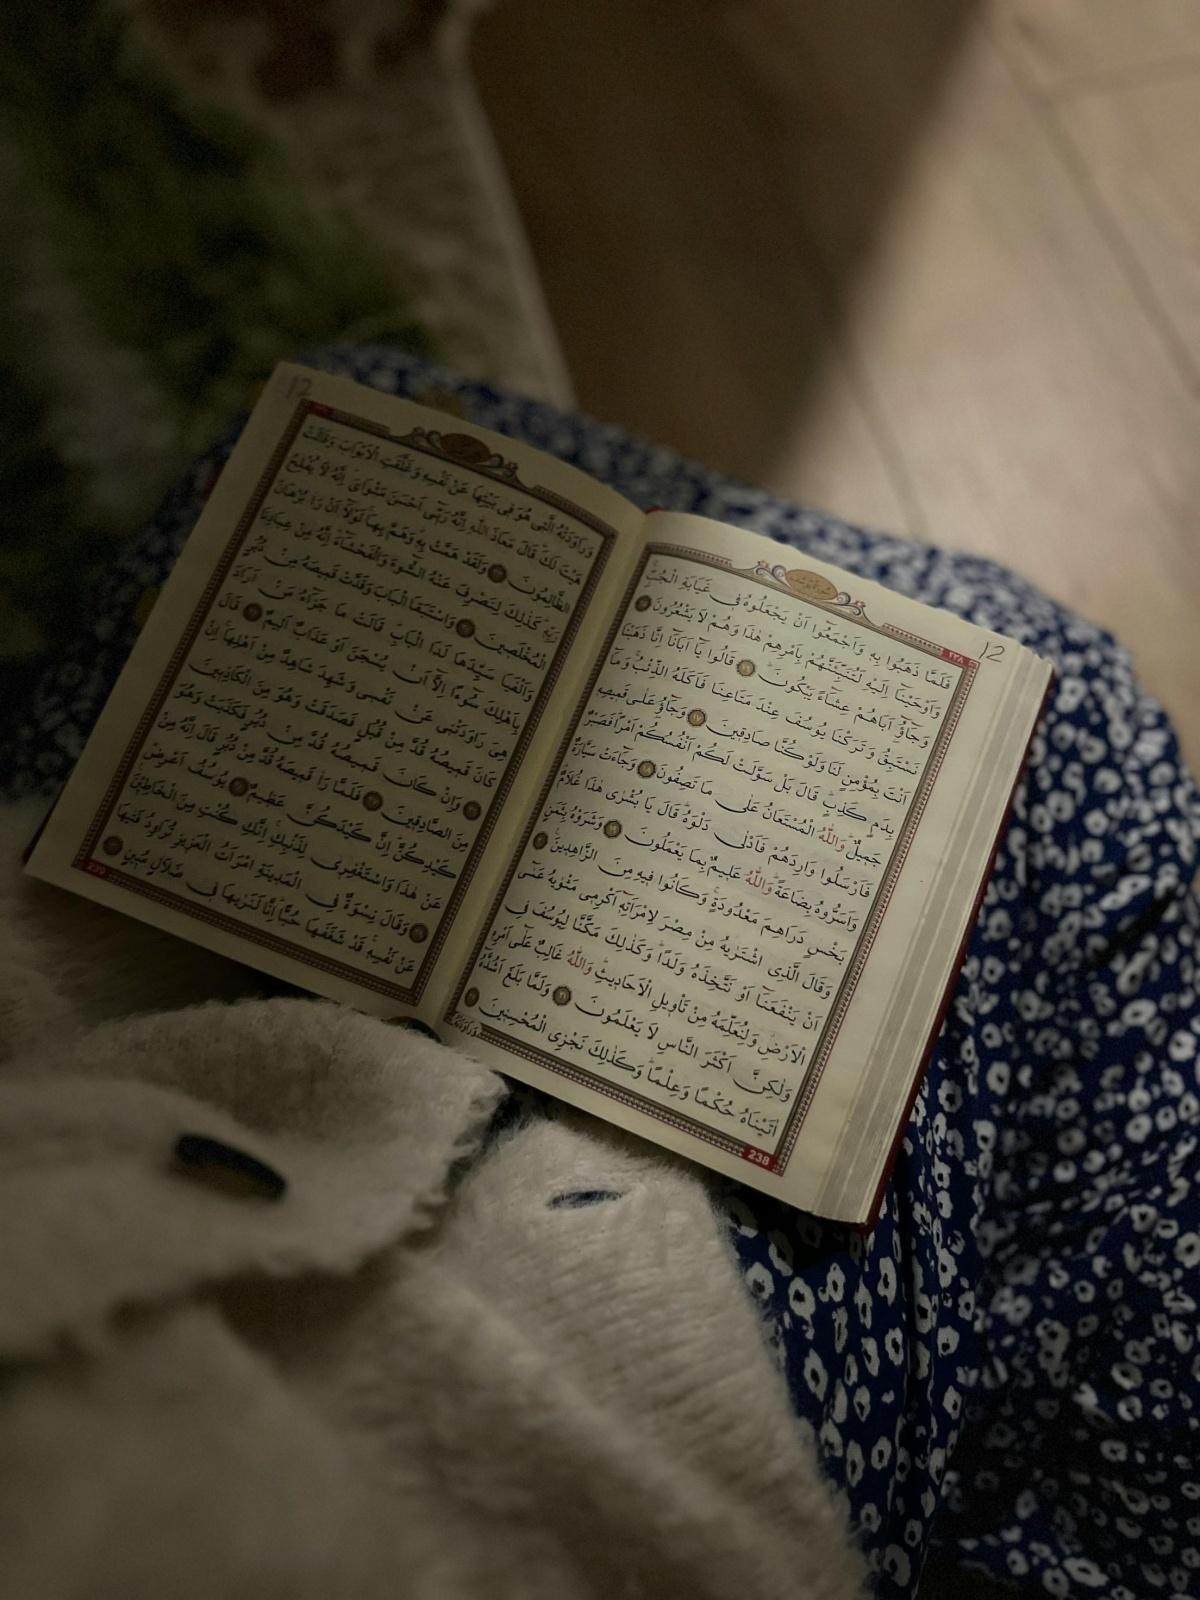 سُورَةُ يُوسُفَ
٢٣٨
12
فَلَمَّا ذَهَبُوا بِهِ وَاَجْمَعُٓوا اَنْ يَجْعَلُوهُ فِى غَيَابَةِ الْجُبِّ
وَاَوْحَيْنَٓا اِلَيْهِ لَتُنَبِّئَنَّهُمْ بِاَمْرِهِمْ هٰذَا وَهُمْ لَا يَشْعُرُونَ ١٥
وَجَٓاؤُٓ اَبَاهُمْ عِشَٓاءً يَبْكُونَ ١٦ قَالُوا يَٓا اَبَانَٓا اِنَّا ذَهَبْنَا
نَسْتَبِقُ وَتَرَكْنَا يُوسُفَ عِنْدَ مَتَاعِنَا فَاَكَلَهُ الذِّئْبُ وَمَٓا
اَنْتَ بِمُؤْمِنٍ لَنَا وَلَوْ كُنَّا صَادِقِينَ ١٧ وَجَٓاؤُ عَلٰى قَمِيصِهِ
بِدَمٍ كَذِبٍ قَالَ بَلْ سَوَّلَتْ لَكُمْ اَنْفُسُكُمْ اَمْرًا فَصَبْرٌ
جَمِيلٌ وَاللّٰهُ الْمُسْتَعَانُ عَلٰى مَا تَصِفُونَ ١٨ وَجَٓاءَتْ سَيَّارَةٌ
فَاَرْسَلُوا وَارِدَهُمْ فَاَدْلٰى دَلْوَهُ قَالَ يَا بُشْرٰى هٰذَا غُلَامٌ
وَاَسَرُّوهُ بِضَاعَةً وَاللّٰهُ عَلِيمٌ بِمَا يَعْمَلُونَ ١٩ وَشَرَوْهُ بِثَمَنٍ
بَخْسٍ دَرَاهِمَ مَعْدُودَةٍ وَكَانُوا فِيهِ مِنَ الزَّاهِدِينَ ٢٠
وَقَالَ الَّذِى اشْتَرٰيهُ مِنْ مِصْرَ لِامْرَاَتِهِٓ اَكْرِمِى مَثْوٰيهُ عَسٰٓى
اَنْ يَنْفَعَنَٓا اَوْ نَتَّخِذَهُ وَلَدًا وَكَذٰلِكَ مَكَّنَّا لِيُوسُفَ فِى
الْاَرْضِ وَلِنُعَلِّمَهُ مِنْ تَاْوِيلِ الْاَحَادِيثِ وَاللّٰهُ غَالِبٌ عَلٰٓى اَمْرِهِ
وَلٰكِنَّ اَكْثَرَ النَّاسِ لَا يَعْلَمُونَ ٢١ وَلَمَّا بَلَغَ اَشُدَّهُٓ
اٰتَيْنَاهُ حُكْمًا وَعِلْمًا وَكَذٰلِكَ نَجْزِى الْمُحْسِنِينَ ٢٢
وَرَاوَدَتْهُ
238
12
وَرَاوَدَتْهُ الَّتِى هُوَ فِى بَيْتِهَا عَنْ نَفْسِهِ وَغَلَّقَتِ الْاَبْوَابَ وَقَالَتْ
هَيْتَ لَكَ قَالَ مَعَاذَ اللّٰهِ اِنَّهُ رَبِّٓى اَحْسَنَ مَثْوَاىَ اِنَّهُ لَا يُفْلِحُ
الظَّالِمُونَ ٢٣ وَلَقَدْ هَمَّتْ بِهِ وَهَمَّ بِهَا لَوْلَٓا اَنْ رَاٰ بُرْهَانَ
رَبِّهِ كَذٰلِكَ لِنَصْرِفَ عَنْهُ السُّٓوءَ وَالْفَحْشَٓاءَ اِنَّهُ مِنْ عِبَادِنَا
الْمُخْلَصِينَ ٢٤ وَاسْتَبَقَا الْبَابَ وَقَدَّتْ قَمِيصَهُ مِنْ دُبُرٍ
وَاَلْفَيَا سَيِّدَهَا لَدَا الْبَابِ قَالَتْ مَا جَزَٓاءُ مَنْ اَرَادَ
بِاَهْلِكَ سُٓوءًا اِلَّٓا اَنْ يُسْجَنَ اَوْ عَذَابٌ اَلِيمٌ ٢٥ قَالَ
هِىَ رَاوَدَتْنِى عَنْ نَفْسِى وَشَهِدَ شَاهِدٌ مِنْ اَهْلِهَا اِنْ
كَانَ قَمِيصُهُ قُدَّ مِنْ قُبُلٍ فَصَدَقَتْ وَهُوَ مِنَ الْكَاذِبِينَ
٢٦ وَاِنْ كَانَ قَمِيصُهُ قُدَّ مِنْ دُبُرٍ فَكَذَبَتْ وَهُوَ
مِنَ الصَّادِقِينَ ٢٧ فَلَمَّا رَاٰ قَمِيصَهُ قُدَّ مِنْ دُبُرٍ قَالَ اِنَّهُ مِنْ
كَيْدِكُنَّ اِنَّ كَيْدَكُنَّ عَظِيمٌ ٢٨ يُوسُفُ اَعْرِضْ
عَنْ هٰذَا وَاسْتَغْفِرِى لِذَنْبِكِ اِنَّكِ كُنْتِ مِنَ الْخَاطِـِٔينَ
٢٩ وَقَالَ نِسْوَةٌ فِى الْمَدِينَةِ امْرَاَتُ الْعَزِيزِ تُرَاوِدُ فَتٰيهَا
عَنْ نَفْسِهِ قَدْ شَغَفَهَا حُبًّا اِنَّا لَنَرٰيهَا فِى ضَلَالٍ مُبِينٍ ٣٠
239